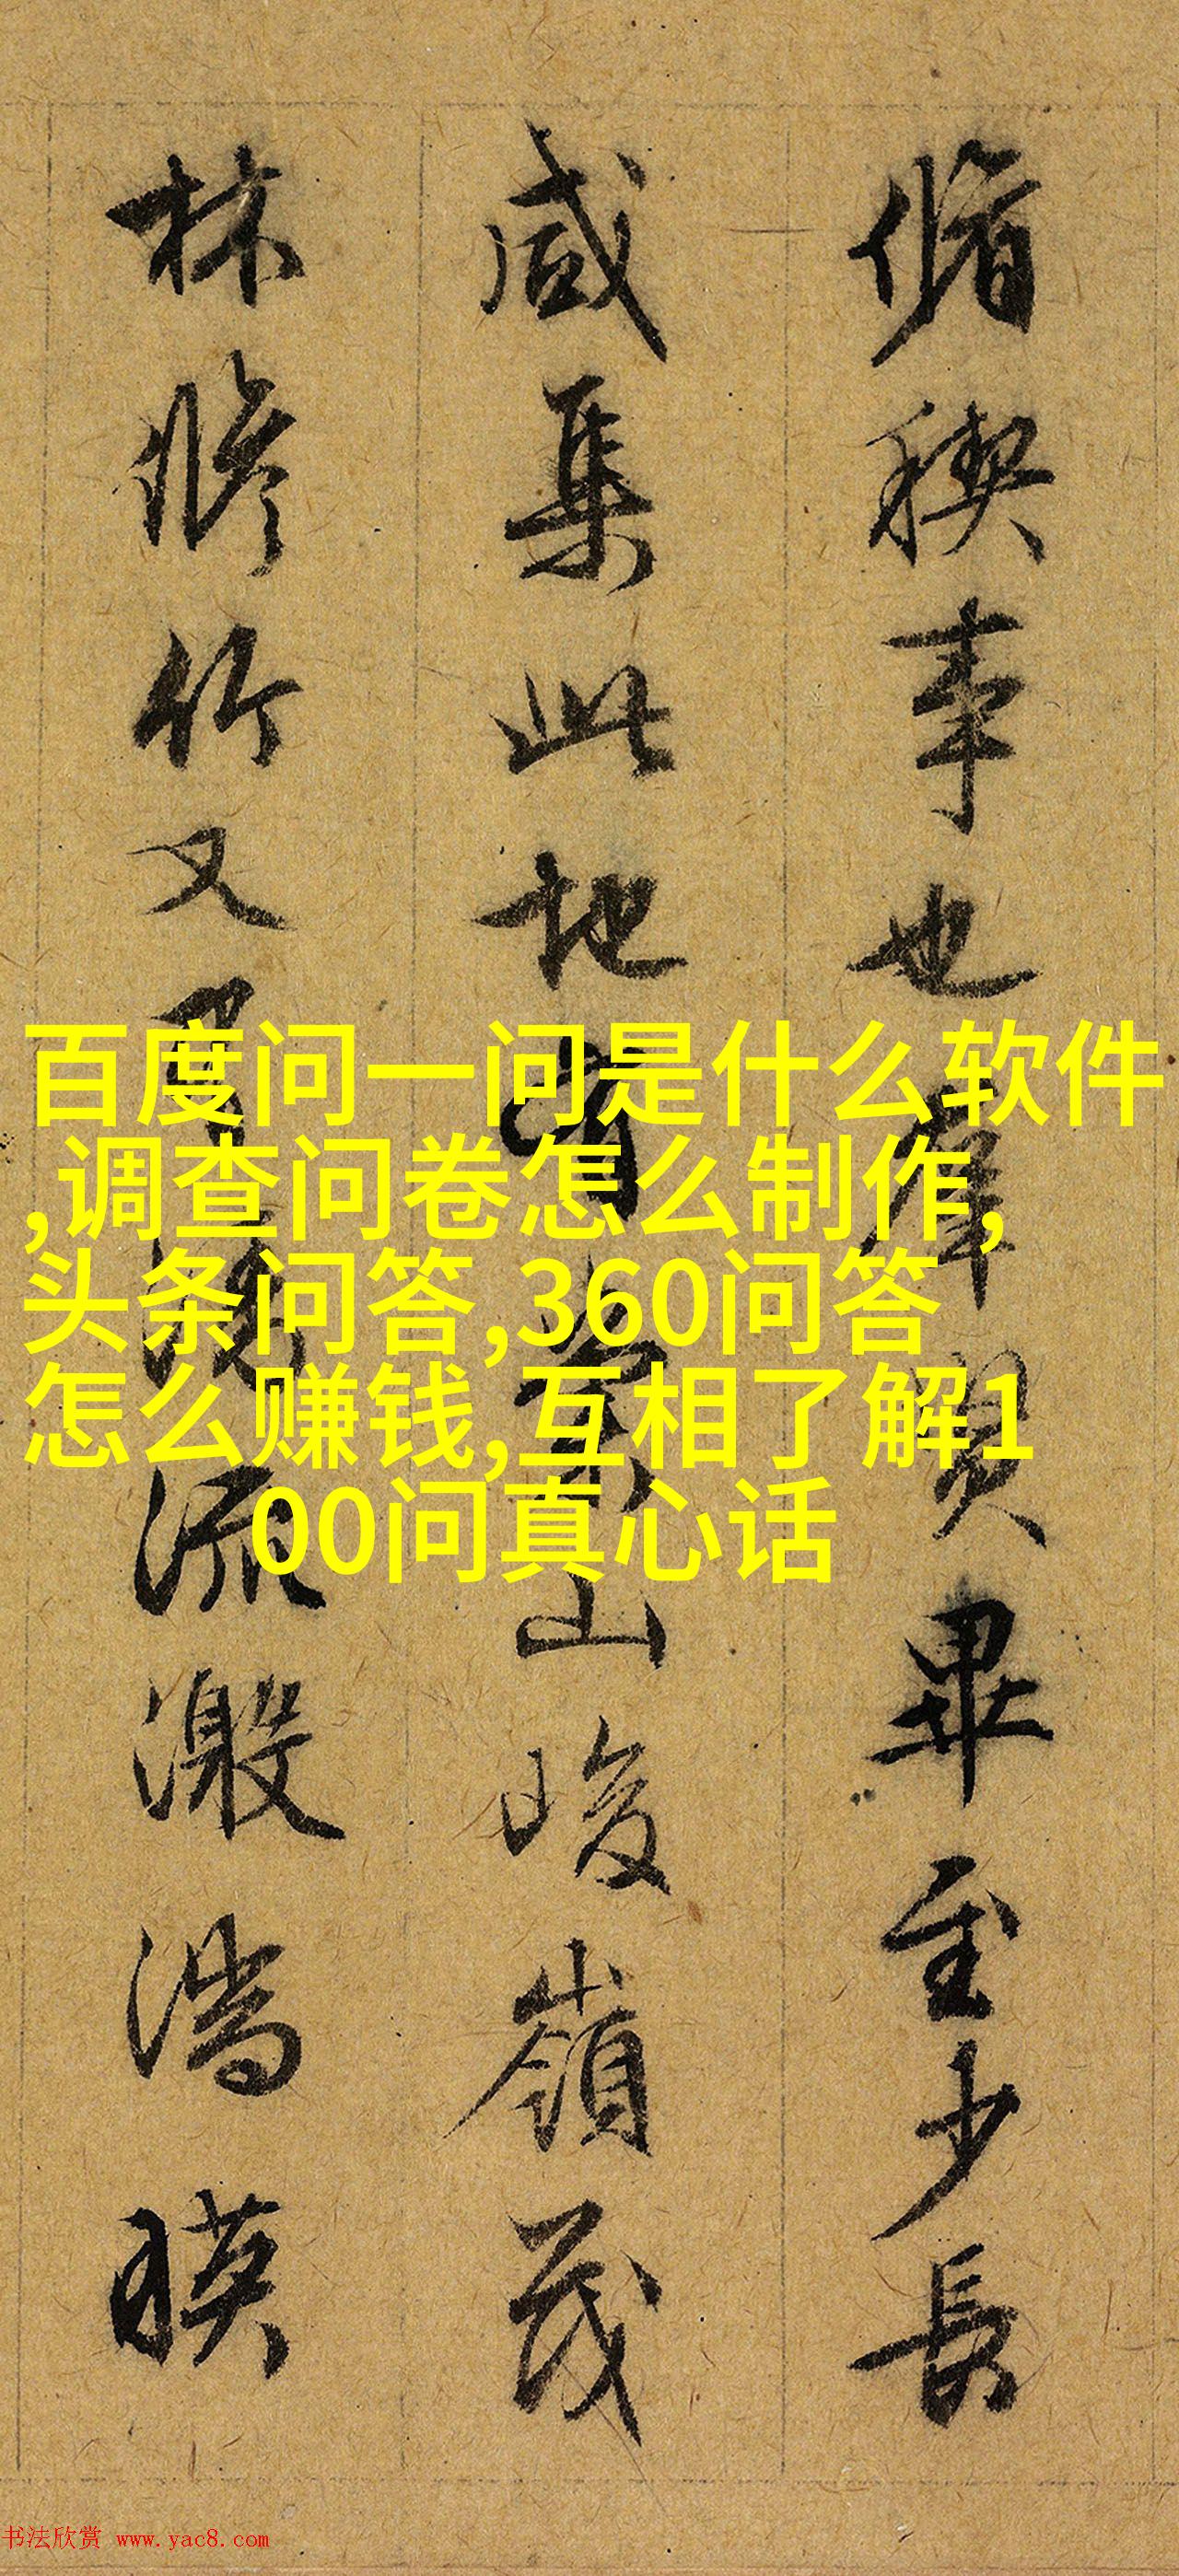 脩稧事也羣賢畢至少長
咸集此地有崇山峻嶺茂
林脩竹又有清流激湍暎
百度问一问是什么软件
,调查问卷怎么制作,
头条问答,360问答
怎么赚钱,互相了解1
00问真心话
书法欣赏 www.yac8.com